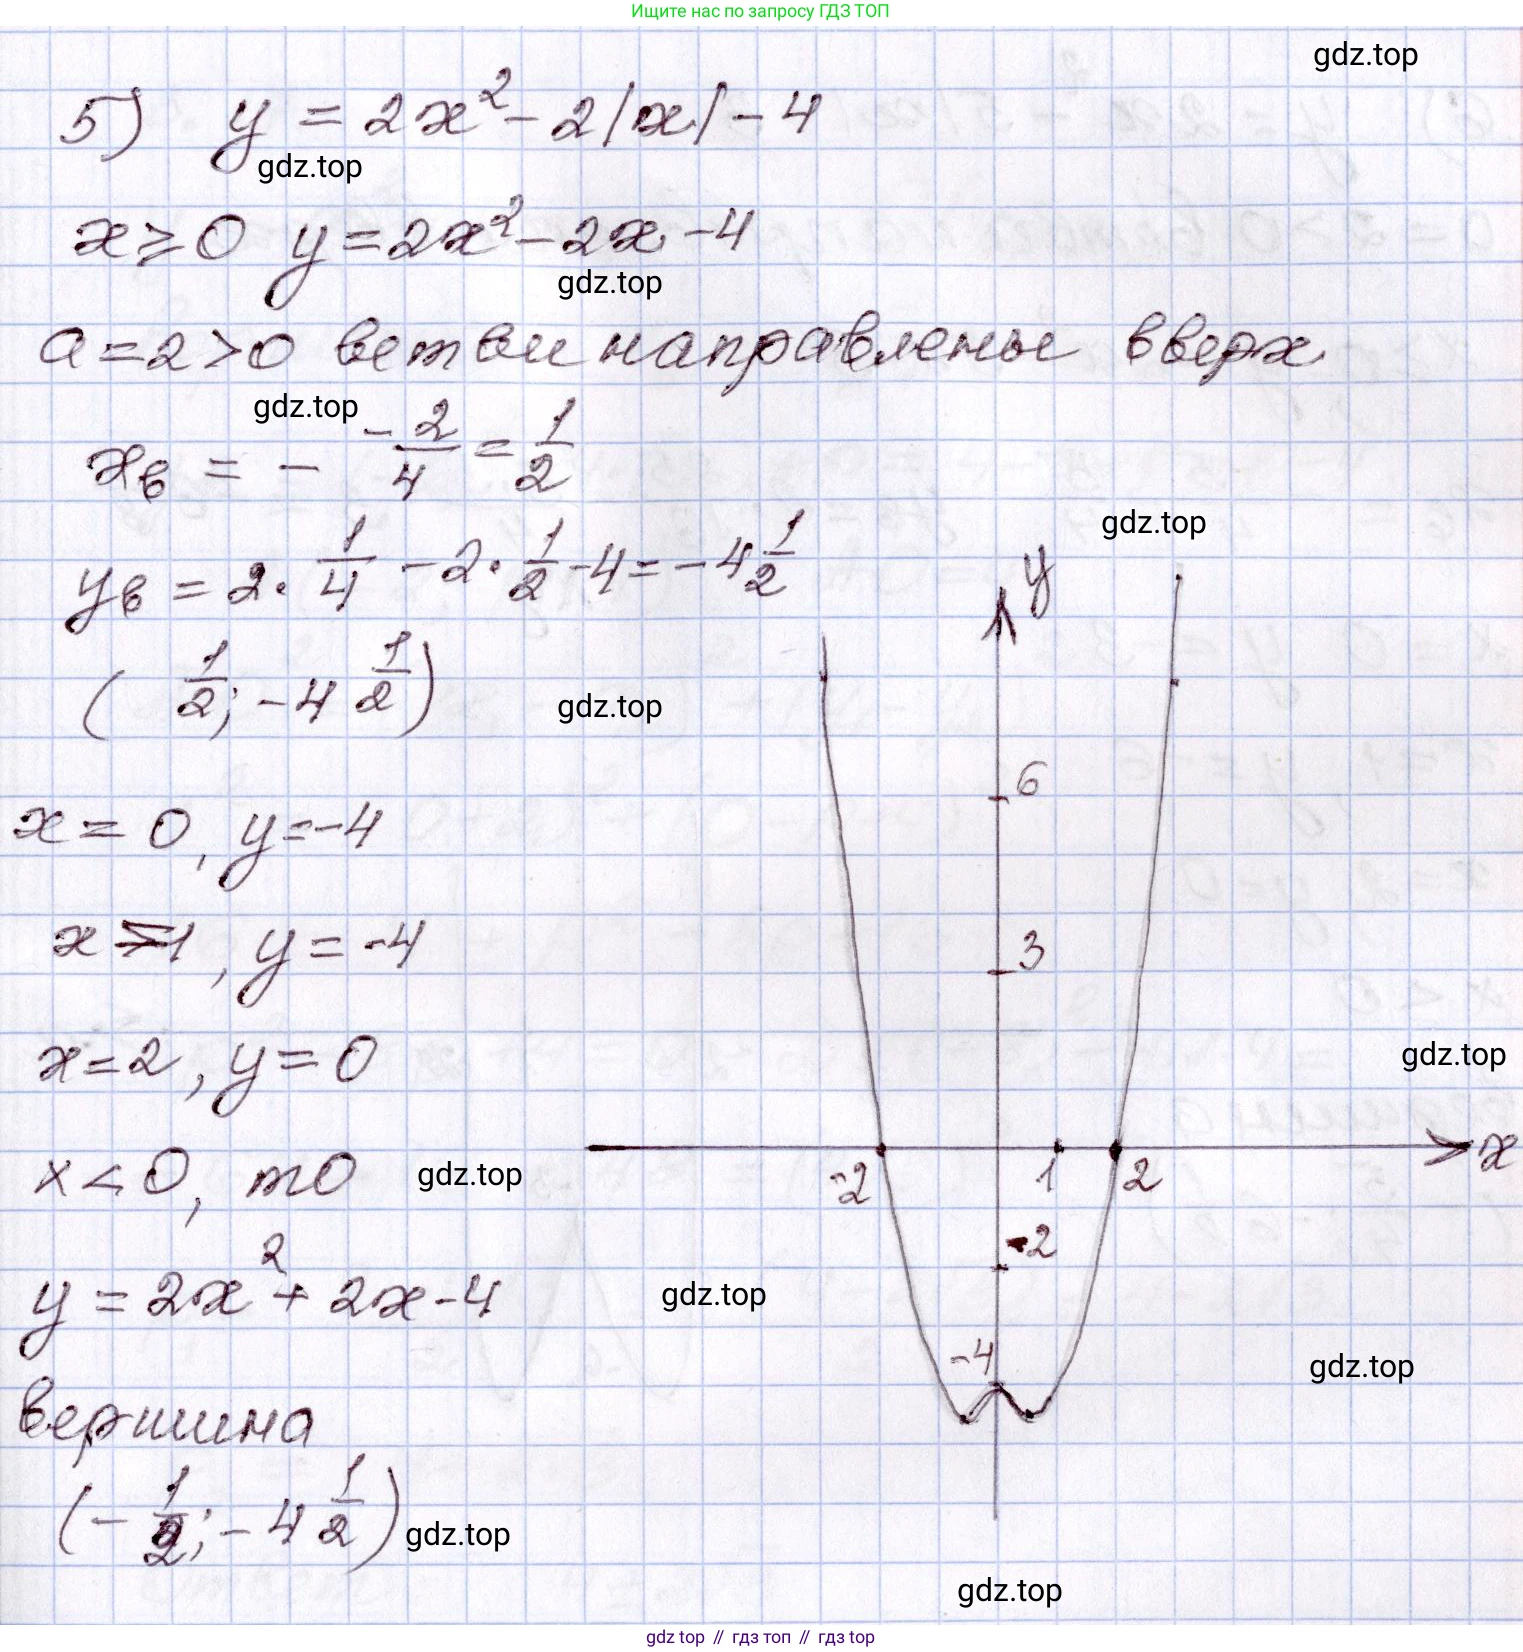 Ищите нас по запросу ГДЗ ТОП
gdz.top
5) y = 2x² - 2|x| - 4
gdz.top
x ≥ 0 y = 2x² - 2x - 4
gdz.top
a = 2 > 0 ветви направлены вверх
gdz.top
xв = - -2/4 = 1/2
gdz.top
yв = 2 · 1/4 - 2 · 1/2 - 4 = -4 1/2
y
(1/2; -4 1/2)
gdz.top
6
x = 0, y = -4
x = 1, y = -4
3
x = 2, y = 0
gdz.top
x < 0, то
gdz.top
-2 1 2 x
-2
y = 2x² + 2x - 4
gdz.top
-4
gdz.top
вершина
(-1/2; -4 1/2)
gdz.top
gdz.top
gdz top // гдз топ // гдз top